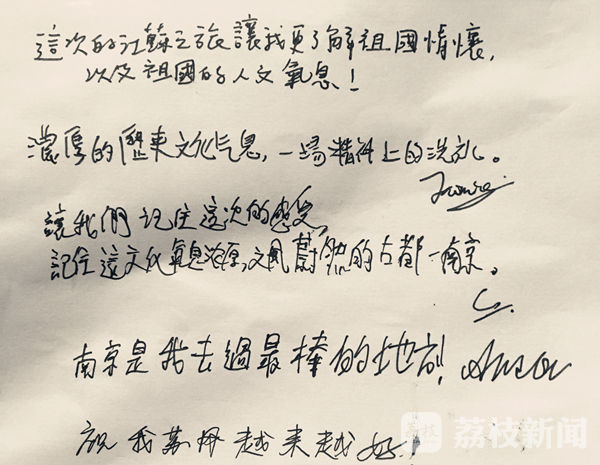 這次的江蘇之旅讓我更了解祖國情懷,
以及祖國的人文氣息!
濃厚的歷史文化气息,一場精神上的洗礼。
讓我們记住這次的感受
記住這文化氣息浓厚,文風蔚然的古都一南京。
南京是我去過最棒的地方!
祝我蘇州越来越好!
荔枝新闻